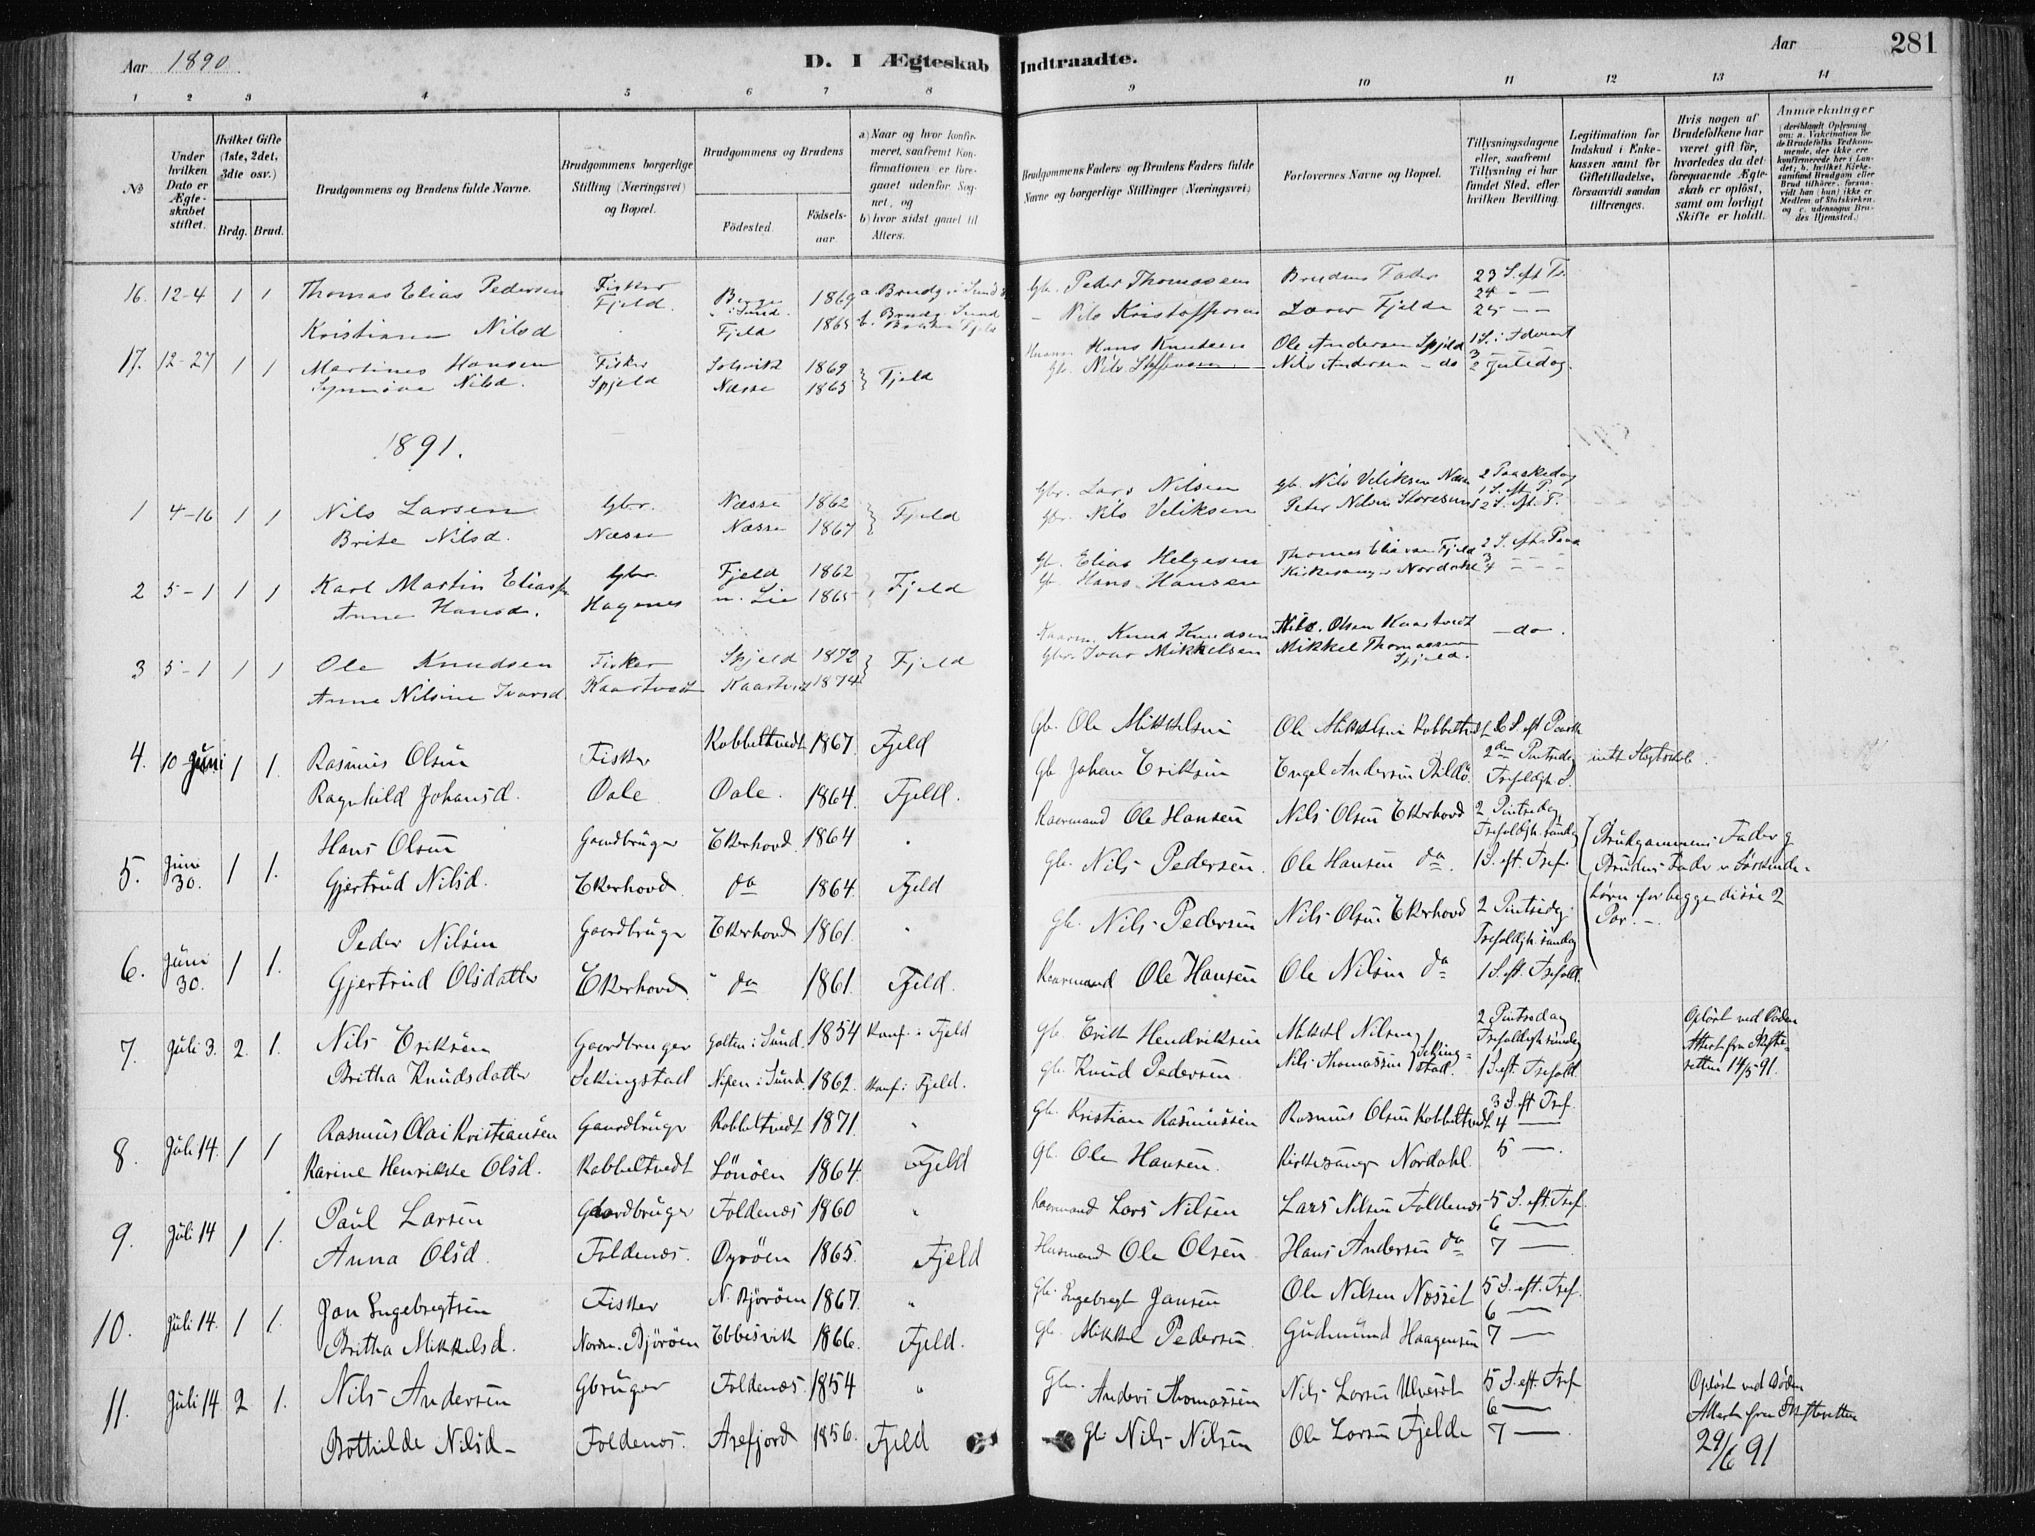 Aar 1890
D. I Ægteskab Indtraadte.
Aar
281
1 2 3 4 5 6 7 8 9 10 11 12 13 14
No
Under hvilken Dato er Ægteskabet stiftet.
Hvilket Gifte (1ste, 2det, 3die osv.)
Brdg. Brud.
Brudgommens og Brudens fulde Navne.
Brudgommens borgerlige Stilling (Næringsvei) og Bopæl.
Brudgommens og Brudens
Födested.
Födsels-aar.
a) Naar og hvor konfirmeret, saafremt Konfirmationen er foregaaet udenfor Sognet, og
b) hvor sidst gaaet til Alters.
Brudgommens Faders og Brudens Faders fulde Navne og borgerlige Stillinger (Næringsvei)
Forlovernes Navne og Bopæl.
Tillysningsdagene eller, saafremt Tillysning ei har fundet Sted, efter hvilken Bevilling.
Legitimation for Indskud i Enkekassen samt for Giftetilladelse, forsaavidt saadan tiltrænges.
Hvis nogen af Brudefolkene har været gift för, hvorledes da det foregaaende Ægteskab er oplöst, samt om lovligt Skifte er holdt.
Anmærkninger
16. 12-4 1 1 Thomas Elias Pedersen Fisker Fjeld. i Sund. 1869 a. Brudg. i Sund Gb. Peder Thomassen Brudens Fader 23 S. eft Tr.
Kristiane Nilsd Fjeld 1865 b. Brudg. Sund - Nils Kristoffersen Lærer Fjelde 24 - - 25 - -
17. 12-27 1 1 Martines Hansen Fisker Solsvik 1869 Fjeld Hans Knudsen Ole Andersen Spjeld 1 S. i Advent
Synnöve Nilsd. Spjeld Næsse 1865 Gb. Nils Nils Andersen - do 3 - 2 Juledag.
1891.
1 4-16 1 1 Nils Larsen Gbr. Næsse 1862 Fjeld Gbr. Lars Nilsen Gb. Nils Veliksen Næsse 2 Paaskedag
Brite Nilsd. Næsse Næsse 1867 Gbr. Nils Veliksen Peter Nilsen Storesund 1 S. eft. P. 2 S. eft. P.
2 5-1 1 1 Karl Martin Eliass. Gbr. Fjeld 1862 Fjeld Gb. Elias Helgesen Thomas Eliassen Fjeld 2 S. eft. Paas
Anne Hansd. Hagenes n. Lie 1865 Gb. Hans Hansen Kirkesanger Nordahl 3 - - 4 - -
3 5-1 1 1 Ole Knudsen Fisker Spjeld 1872 Fjeld Kaarm. Knud Knudsen Nils Olsen Kaartvedt - do -.
Anne Nilsine Ivarsd. Kaartvedt Kaartvedt 1874 Gbr. Ivar Mikkelsen Mikkel Thomassen Spjeld.
4. 10 Juni 1 1. Rasmus Olsen Fisker Kobbeltvedt 1867. Fjeld Gb. Ole Mikkelsen Ole Mikkelsen Kobbeltvedt 6 S. eft Paaske
Ragnhild Johansd. Dale Dale. 1864. Fjeld. Gb Johan Eriksen Engel Andersen Bildö. 2den Pintsedag Trefoldigh. S.
5. Juni 30. 1 1. Hans Olsen Gaardbruger Ekerhovd 1864 Kaarmand Ole Hansen Nils Olsen Ekerhovd 2 Pintsedag Trefoldigh. söndag
Gjertrud Nilsd. Ekerhovd. do 1864. Fjeld Gb. Nils Pedersen. Ole Hansen do. 1 S. eft. Tref.
Brudgommens Fader og Brudens Fader er Söskendebörn for begge disse 2 Par. -
6. Juni 30. 1 1. Peder Nilsen Gaardbruger Ekerhovd 1861. Gb. Nils Pedersen Nils Olsen Ekerhovd 2 Pintsedag. Trefoldigh. söndag
Gjertrud Olsdatter Ekerhovd " do 1861. Fjeld. Kaarmand Ole Hansen Ole Nilsen do 1 S. eft. Trefold.
7. Juli 3. 2. 1. Nils Eriksen Gaardbruger Golten i Sund. 1854 Konf. i Fjeld Gb Erik Hendriksen Mikkel Nilsen 2 Pintsedag Trefoldigh söndag Oplöst ved Döden
Britha Knudsdatter Sekingstad Nipen i Sund. 1862. Konf. i Fjeld. Gb. Knud Pedersen. Nils Thomassen Sekingstad. 1 S. eft. Trefold. Attest fra Skifteretten 14/5 91.
8. Juli 14. 1 1 Rasmus Olai Kristiansen Gaardbruger Kobbeltvedt 1871. " Gb. Kristian Rasmussen Rasmus Olsen Kobbeltvedt. 3 S. eft Tref. 4 —
Karine Henrikke Olsd. Kobbeltvedt Lönöen 1864. Fjeld Gb. Ole Hansen. Kirkesanger Nordahl. 5 —.
9. Juli 14 1 1. Paul Larsen Gaardbruger Foldenæs 1860 " Kaarmand Lars Nilsen Lars Nilsen Foldenæs 5 S. eft. Tref. 6 —
Anna Olsd. Foldenæs. Dyröen 1865. Fjeld Husmand Ole Olsen Hans Andersen do 7 —
10. Juli 14. 1 1. Jon Engebregtsen Fisker N. Björöen 1867. " Gb. Engebregt Jansen Ole Nilsen Næsset 5 S. eft. Tref. 6 —
Britha Mikkelsd. Nordre Björöen Ebbesvik 1866. Fjeld. Gb. Mikkel Pedersen. Gudmund Haagensen 7 —
11. Juli 14. 2 1. Nils Andersen Gbruger Foldenæs. 1854 " Gb. Anders Thomassen Nils Larsen Ulveset 5 S. eft. Tref. 6 — Oplöst ved Döden
Bothilde Nilsd- Foldenæs. Arefjord 1856. Fjeld Gb. Nils Nilsen Ole Larsen Fjelde 7 — Attest fra Skifteretten 29/6 91